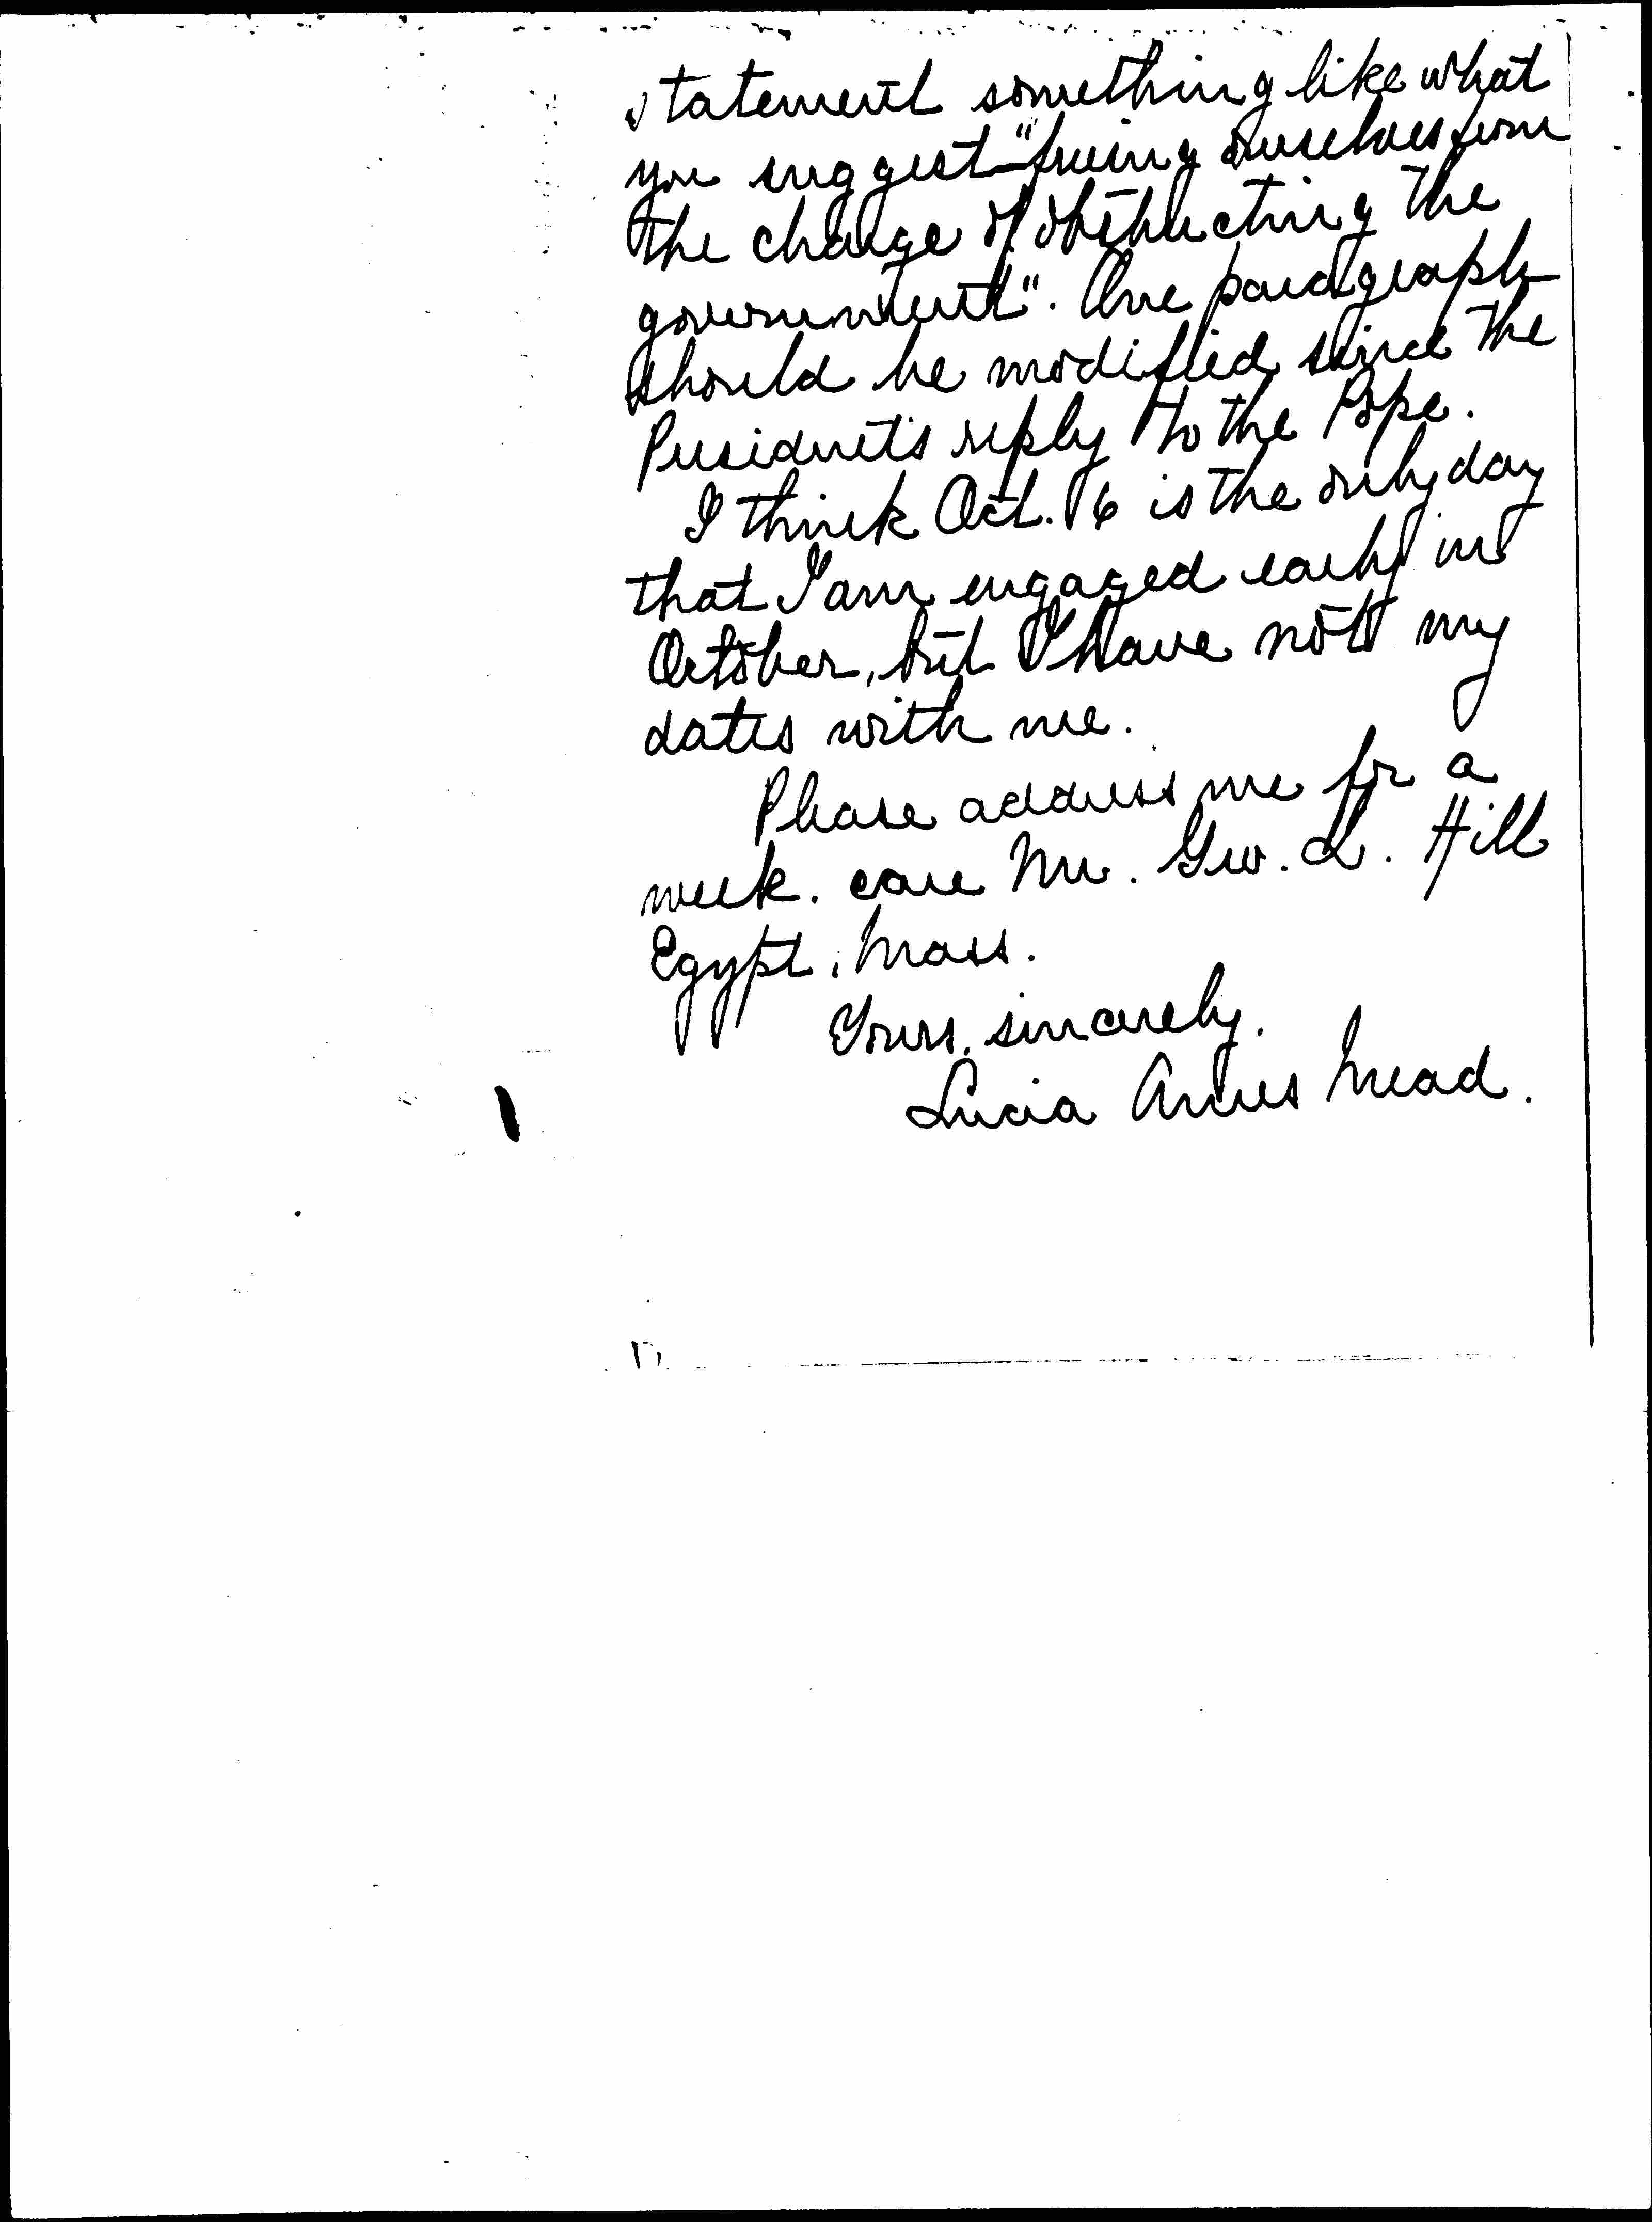 statement something like what
you suggest "freeing ourselves from
the charge of obstructing the
government". One paragraph
should be modified since the
President's reply to the Pope.
I think Oct. 6 is the only day
that I am engaged early in
October, but I have not my
dates with me.
Please address me for a
week. care Mr. Geo. L. Hill
Egypt, Mass.
Yours, sincerely.
Lucia Ames Mead.